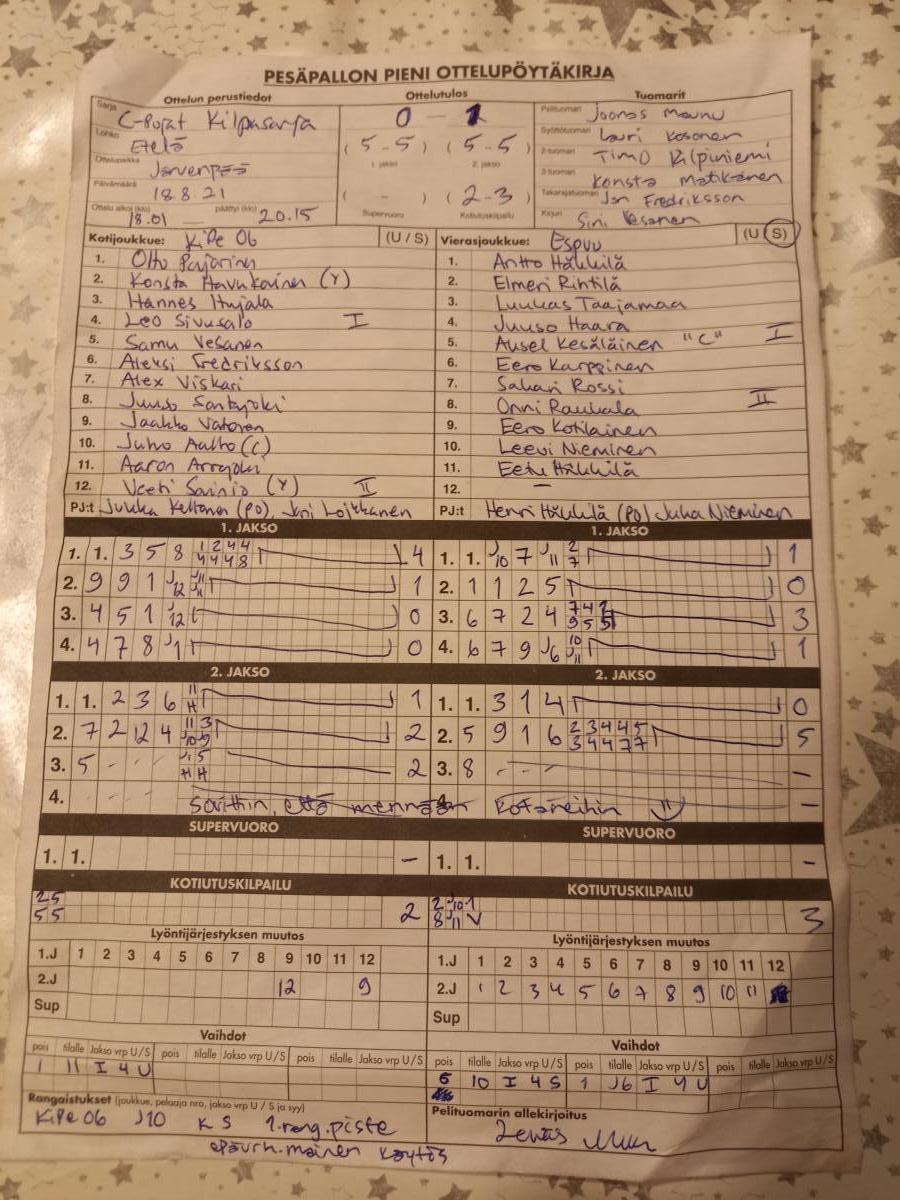 PESÄPALLON PIENI OTTELUPÖYTÄKIRJA
Ottelun perustiedot
Ottelutulos
Tuomarit
Sarja C-Pojat Kilpasarja
0 - 1
Pelituomari Joonas Maunu
Lohko Etelä
(5-5) (5-5)
Syöttötuomari Lauri Kosonen
1. jakso 2. jakso
2-tuomari Timo Kilpiniemi
Ottelupaikka Järvenpää
3-tuomari Konsta Matikainen
Päivämäärä 18.8.21
( - ) (2-3)
Takarajatuomari Jan Fredriksson
Ottelu alkoi (klo) 18.01 päättyi (klo) 20.15
Supervuoro Kotiutuskilpailu
Kirjuri Sini Vesanen
Kotijoukkue: KiPe 06 (U / S)
Vierasjoukkue: Espuu (U S)
1. Otto Parjarinen
1. Antto Häkkilä
2. Konsta Havukainen (Y)
2. Elmeri Rihtilä
3. Hannes Itujala
3. Luukas Taajamaa
4. Leo Sivusalo I
4. Juuso Haara
5. Samu Vesanen
5. Aksel Kesäläinen "C" I
6. Aleksi Fredriksson
6. Eero Karppinen
7. Alex Viskari
7. Sakari Rossi
8. Juuso Santajoki
8. Onni Raukala II
9. Jaakko Vatanen
9. Eero Kotilainen
10. Juho Aalto (C)
10. Leevi Nieminen
11. Aaron Arrajoki
11. Eetu Häkkilä
12. Veeti Sainio (Y) II
12. –
PJ:t Jukka Keltanen (PD), Jani Loikkanen
PJ:t Henri Häkkilä (PD) Juha Nieminen
1. JAKSO
1. JAKSO
1. 1. 3 5 8 1 2 4 4 4
4 4 4 8
1. 1. J10 7 J11 2 1
7
2. 9 9 1 J12 J11 1
2. 1 1 2 5 0
3. 4 5 1 J12 0
3. 6 7 2 4 7 4 2 3
9 5 5
4. 4 7 8 J1 0
4. 6 7 9 J6 10 1
J11
2. JAKSO
2. JAKSO
1. 1. 2 3 6 11 1
H
1. 1. 3 1 4 0
2. 7 2 12 4 11 3 2
J10 9
2. 5 9 1 6 2 3 4 4 5 5
3 4 4 7 7
3. 5 - - - J11 5 2
H H
3. 8 - - - –
4. - - - sovittiin, että mennään kotareihin –
SUPERVUORO
SUPERVUORO
1. 1. –
1. 1. –
KOTIUTUSKILPAILU
KOTIUTUSKILPAILU
2 5
5 5 2
2 J10 1
8 J11 V 3
Lyöntijärjestyksen muutos
Lyöntijärjestyksen muutos
1.J 1 2 3 4 5 6 7 8 9 10 11 12
1.J 1 2 3 4 5 6 7 8 9 10 11 12
2.J 12 9
2.J 1 2 3 4 5 6 7 8 9 10 11
Sup
Sup
Vaihdot
Vaihdot
pois tilalle Jakso vrp U/S pois tilalle Jakso vrp U/S pois tilalle Jakso vrp U/S
pois tilalle Jakso vrp U/S pois tilalle Jakso vrp U/S pois tilalle Jakso vrp U/S
1 11 I 4 U
6 10 I 4 S 1 J6 I 4 U
Rangaistukset (joukkue, pelaaja nro, jakso vrp U / S ja syy)
Pelituomarin allekirjoitus
KiPe 06 J10 K S 1.rang.piste
epäurh.mainen käytös